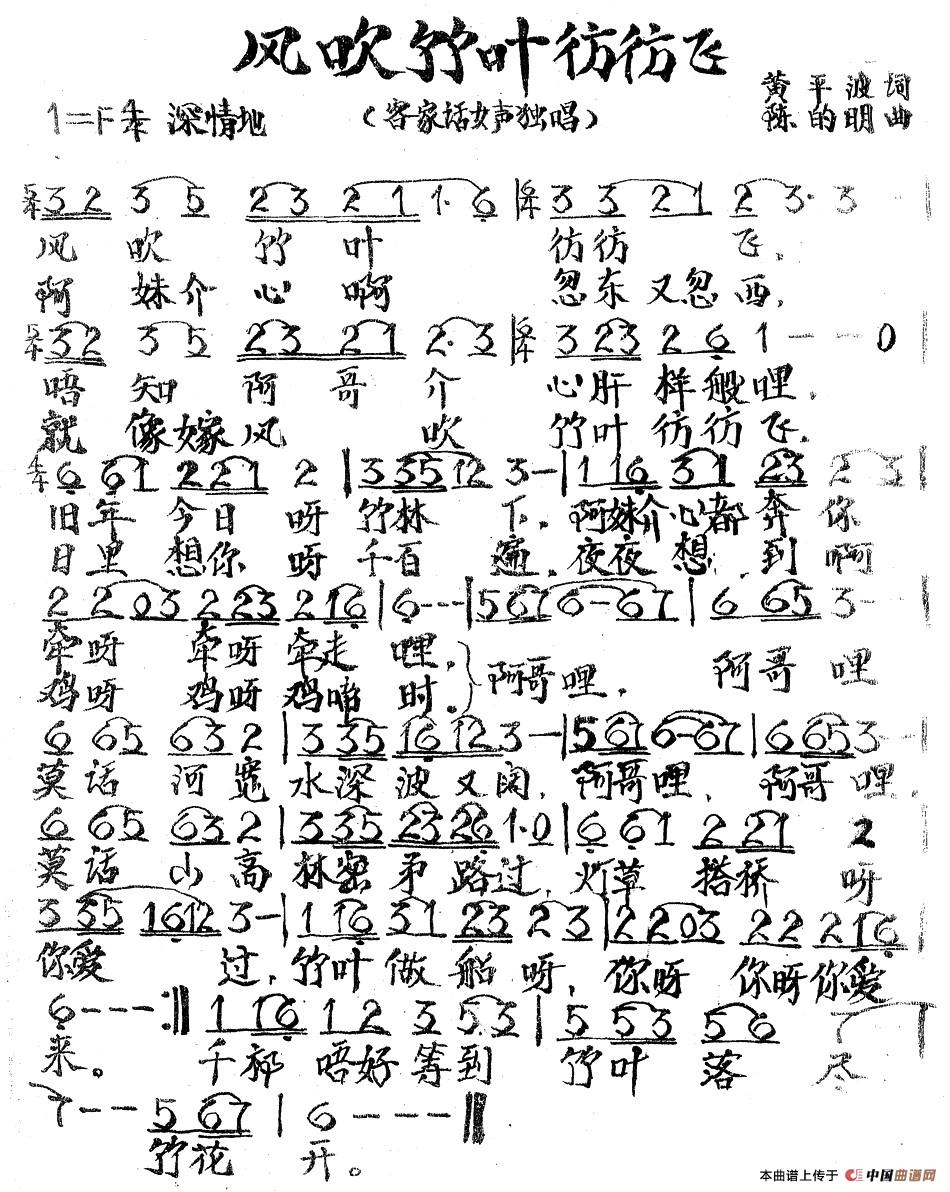 风吹竹叶彷彷飞
黄平波词
1=F 深情地
（客家话女声独唱）
陈的明曲
3 2 3 5 2 3 2 1 1· 6 | 3 3 2 1 2 3· 3 |
风吹竹叶 彷彷飞，
阿妹介心啊 忽东又忽西，
3 2 3 5 2 3 2 1 2· 3 | 3 2 3 2 6 1 - - 0 |
唔知阿哥介 心肝样般哩，
就像嫁风吹 竹叶彷彷飞，
6 6 1 2 2 1 2 | 3 3 5 1 2 3 - | 1 1 6 3 1 2 3 2 3 |
旧年今日呀竹林下，阿妹介心都奔你
日里想你呀千百遍，夜夜想到啊
2 2 0 3 2 2 3 2 1 6 | 6 - - - | 5 6 7 6 - 6 7 | 6 6 5 3 - - |
牵呀 牵呀牵走哩，
鸡呀 鸡呀鸡啼时。
阿哥哩， 阿哥哩
6 6 5 6 3 2 | 3 3 5 1 6 1 2 3 - | 5 6 7 6 - 6 7 | 6 6 5 3 - - |
莫话河宽水深波又阔，阿哥哩，阿哥哩，
6 6 5 6 3 2 | 3 3 5 2 3 2 6 1· 0 | 6 6 1 2 2 1 2
莫话山高林密 路过，灯草搭桥呀
3 3 5 1 6 1 2 3 - | 1 1 6 3 1 2 3 2 3 | 2 2 0 3 2 2 2 1 6 |
你爱过，竹叶做船呀，你呀 你呀你爱
6 - - - :‖ 1 1 6 1 2 3 5 3 | 5 5 3 5 6 7
来。 千祈唔好等到竹叶落尽
7 - - 5 6 7 | 6 - - - ‖
竹花开。
本曲谱上传于 中国曲谱网